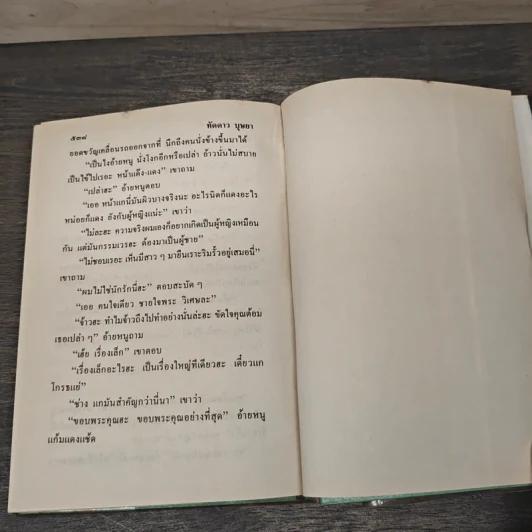 ๕๓๘
ทัดดาว บุษยา
ยอดขวัญเคลื่อนรถออกจากที่ นึกถึงคนนั่งข้างขึ้นมาได้
“เป็นไงอ้ายหนู นั่งโงกอีกหรือเปล่า อ้าวนั่นไม่สบาย
เป็นไข้ไปเรอะ หน้าแด๊ง-แดง” เขาถาม
“เปล่าฮะ” อ้ายหนูตอบ
“เออ หน้าแกนี่มันผิวบางจริงนะ อะไรนิดก็แดงอะไร
หน่อยก็แดง ยังกับผู้หญิงแน่ะ” เขาว่า
“ไม่ละฮะ ความจริงผมเองก็อยากเกิดเป็นผู้หญิงเหมือน
กัน แต่มันกรรมเวรฮะ ต้องมาเป็นผู้ชาย”
“ไม่ชอบเรอะ เห็นมีสาว ๆ มายืนเราะริมรั้วอยู่เสมอนี่”
เขาถาม
“ผมไม่ใช่นักรักนี่ฮะ” ตอบสะบัด ๆ
“เออ คนใจเดียว ชายใจพระ วิเศษละ”
“จ้าวฮะ ทำไมจ้าวถึงไปทำอย่างนั้นล่ะฮะ ขัดใจคุณต้อม
เธอเปล่า ๆ” อ้ายหนูถาม
“เฮ้ย เรื่องเล็ก” เขาตอบ
“เรื่องเล็กอะไรฮะ เป็นเรื่องใหญ่ทีเดียวฮะ เดี๋ยวแก
โกรธแย่”
“ช่าง แกมันสำคัญกว่านี่นา” เขาว่า
“ขอบพระคุณฮะ ขอบพระคุณอย่างที่สุด” อ้ายหนู
แก้มแดงแช้ด